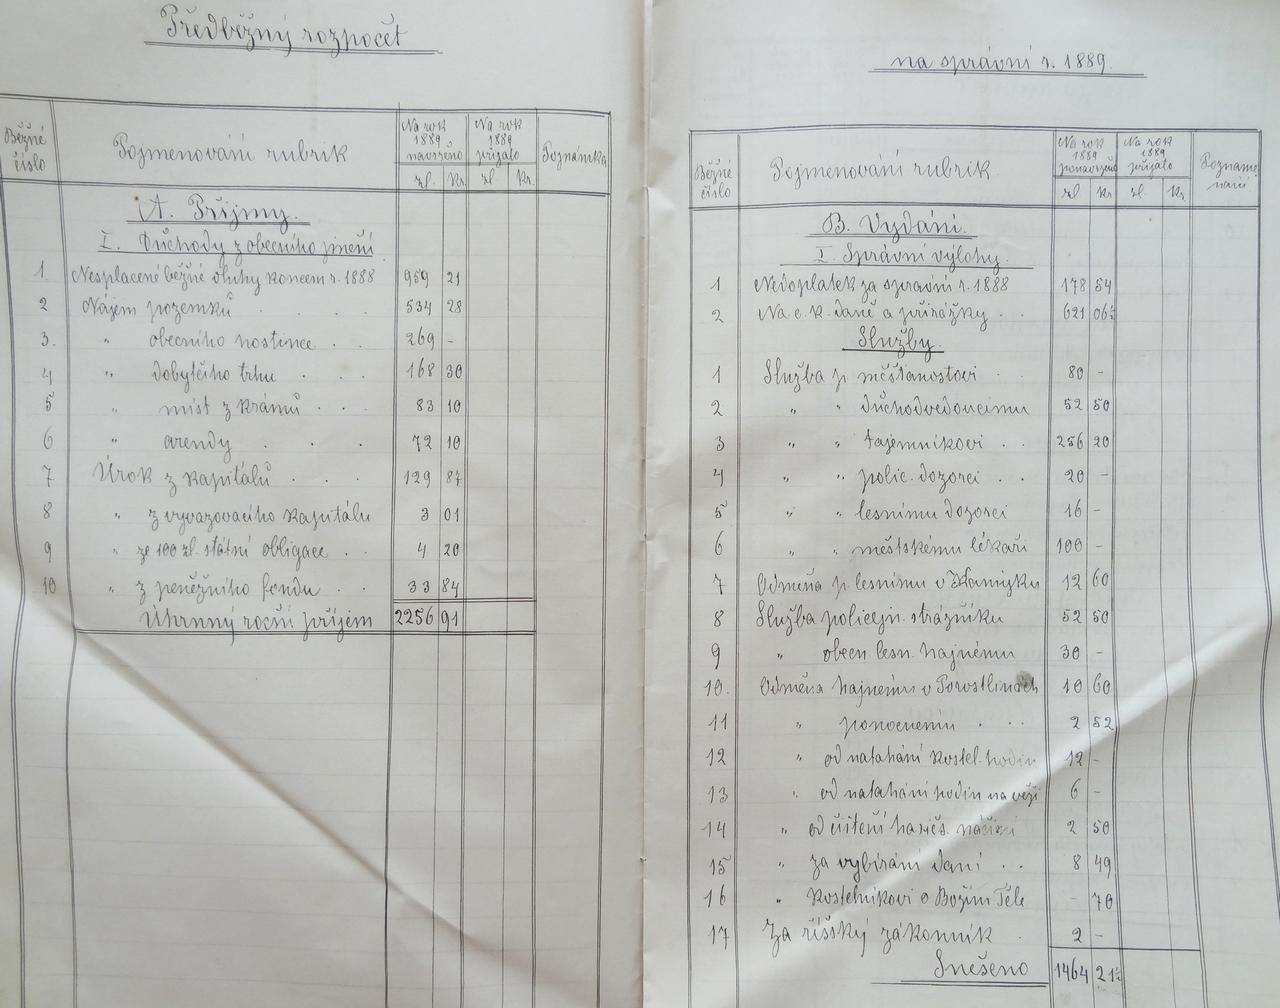 Předběžný rozpočet
Běžné číslo Pojmenování rubrik Na rok 1889 navrženo Na rok 1889 přijato Poznámka
zl. kr. zl kr.
A. Příjmy.
I. Důchody z obecního jmění
1 Nesplacené běžné dluhy koncem r. 1888 959 21
2 Nájem pozemků . . . . 534 28
3. " obecního hostince . . 269 -
4 " dobytčího trhu . . . 168 30
5 " míst z krámů . . . 83 10
6 " arendy . . . 72 10
7 Úrok z kapitálů . . . 129 87
8 " z vyvazovacího kapitálu 3 01
9 " ze 100 zl. státní obligace . . 4 20
10 " z peněžního fondu . . 33 84
Úhrnný roční příjem 2256 91
na správní r. 1889.
Běžné číslo Pojmenování rubrik Na rok 1889 Na rok 1889 přijato
zl kr zl. kr.
B. Vydání.
I. Správní výlohy.
1 Nedoplatek za správní r. 1888 178 54
2 Na c. k. daně a přirážky . . 621 06½
Služby.
1 Služba p. měšťanostovi . . 80 -
2 " " důchodvedoucímu 52 50
3 " " tajemníkovi . . 256 20
4 " " polic. dozorci . . 20 -
5 " " lesnímu dozorci 16 -
6 " " městskému lékaři 100 -
7 Odměna p. lesnímu v 12 60
8 Služba policejn. strážníku 52 50
9 " obecn lesn. hajnému 30 -
10. Odměna hajnému v Porostlinách 10 60
11 " ponocnému . . . 2 52
12 " od natahání kostel. hodin 12 -
13 " od natahání hodin na věži 6 -
14 " od čistění hasičs. náčiní 2 50
15 " za vybírání daní . . 8 49
16 " Kostelníkovi o Božím Těle - 70
17 Za říšský zákonník . 2 -
Snešeno 1464 21½